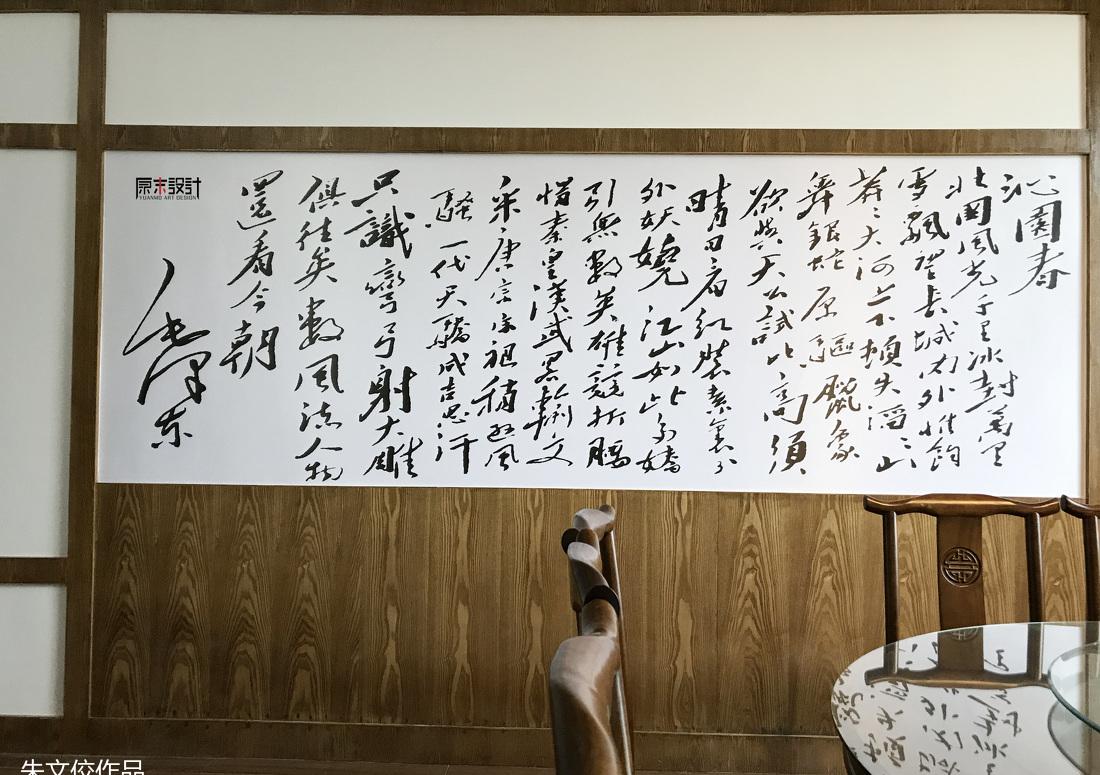 沁園春
北國風光千里冰封萬里
雪飄望長城內外惟餘
莽々大河上下頓失滔々山
舞銀蛇原驅臘象
欲與天公試比高須
晴日看紅裝素裹分
外妖嬈江山如此多嬌
引無數英雄競折腰
惜秦皇漢武略輸文
采唐宗宋祖稍遜風
騷一代天驕成吉思汗
只識彎弓射大雕
俱往矣數風流人物
還看今朝
毛澤東
原末設計
YUANMO ART DESIGN
朱文佼作品